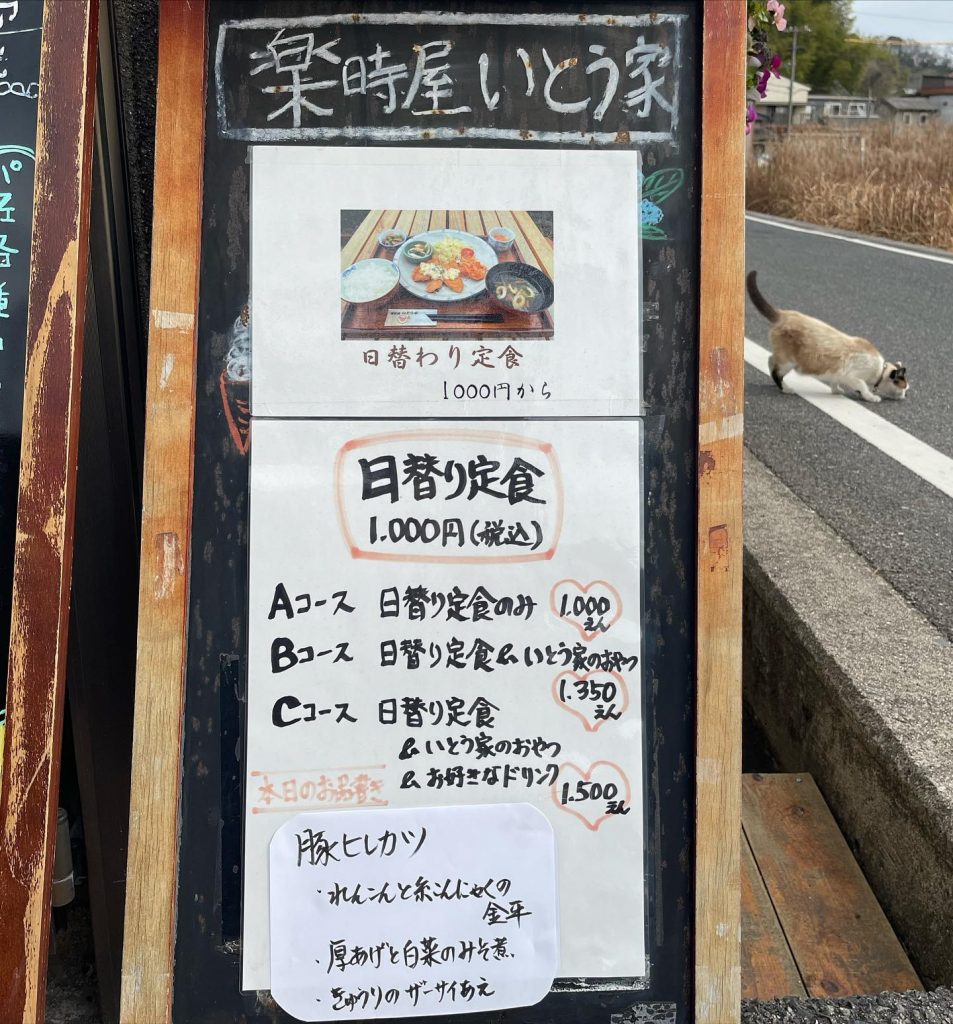 楽時屋いとう家
日替わり定食
1000円から
日替り定食
1.000円(税込)
Aコース 日替り定食のみ 1.000えん
Bコース 日替り定食&いとう家のおやつ
1.350えん
Cコース 日替り定食
&いとう家のおやつ
&お好きなドリンク 1.500えん
本日のお品書き
豚ヒレカツ
・れんこんと糸こんにゃくの
金平
・厚あげと白菜のみそ煮.
・きゅうりのザーサイあえ